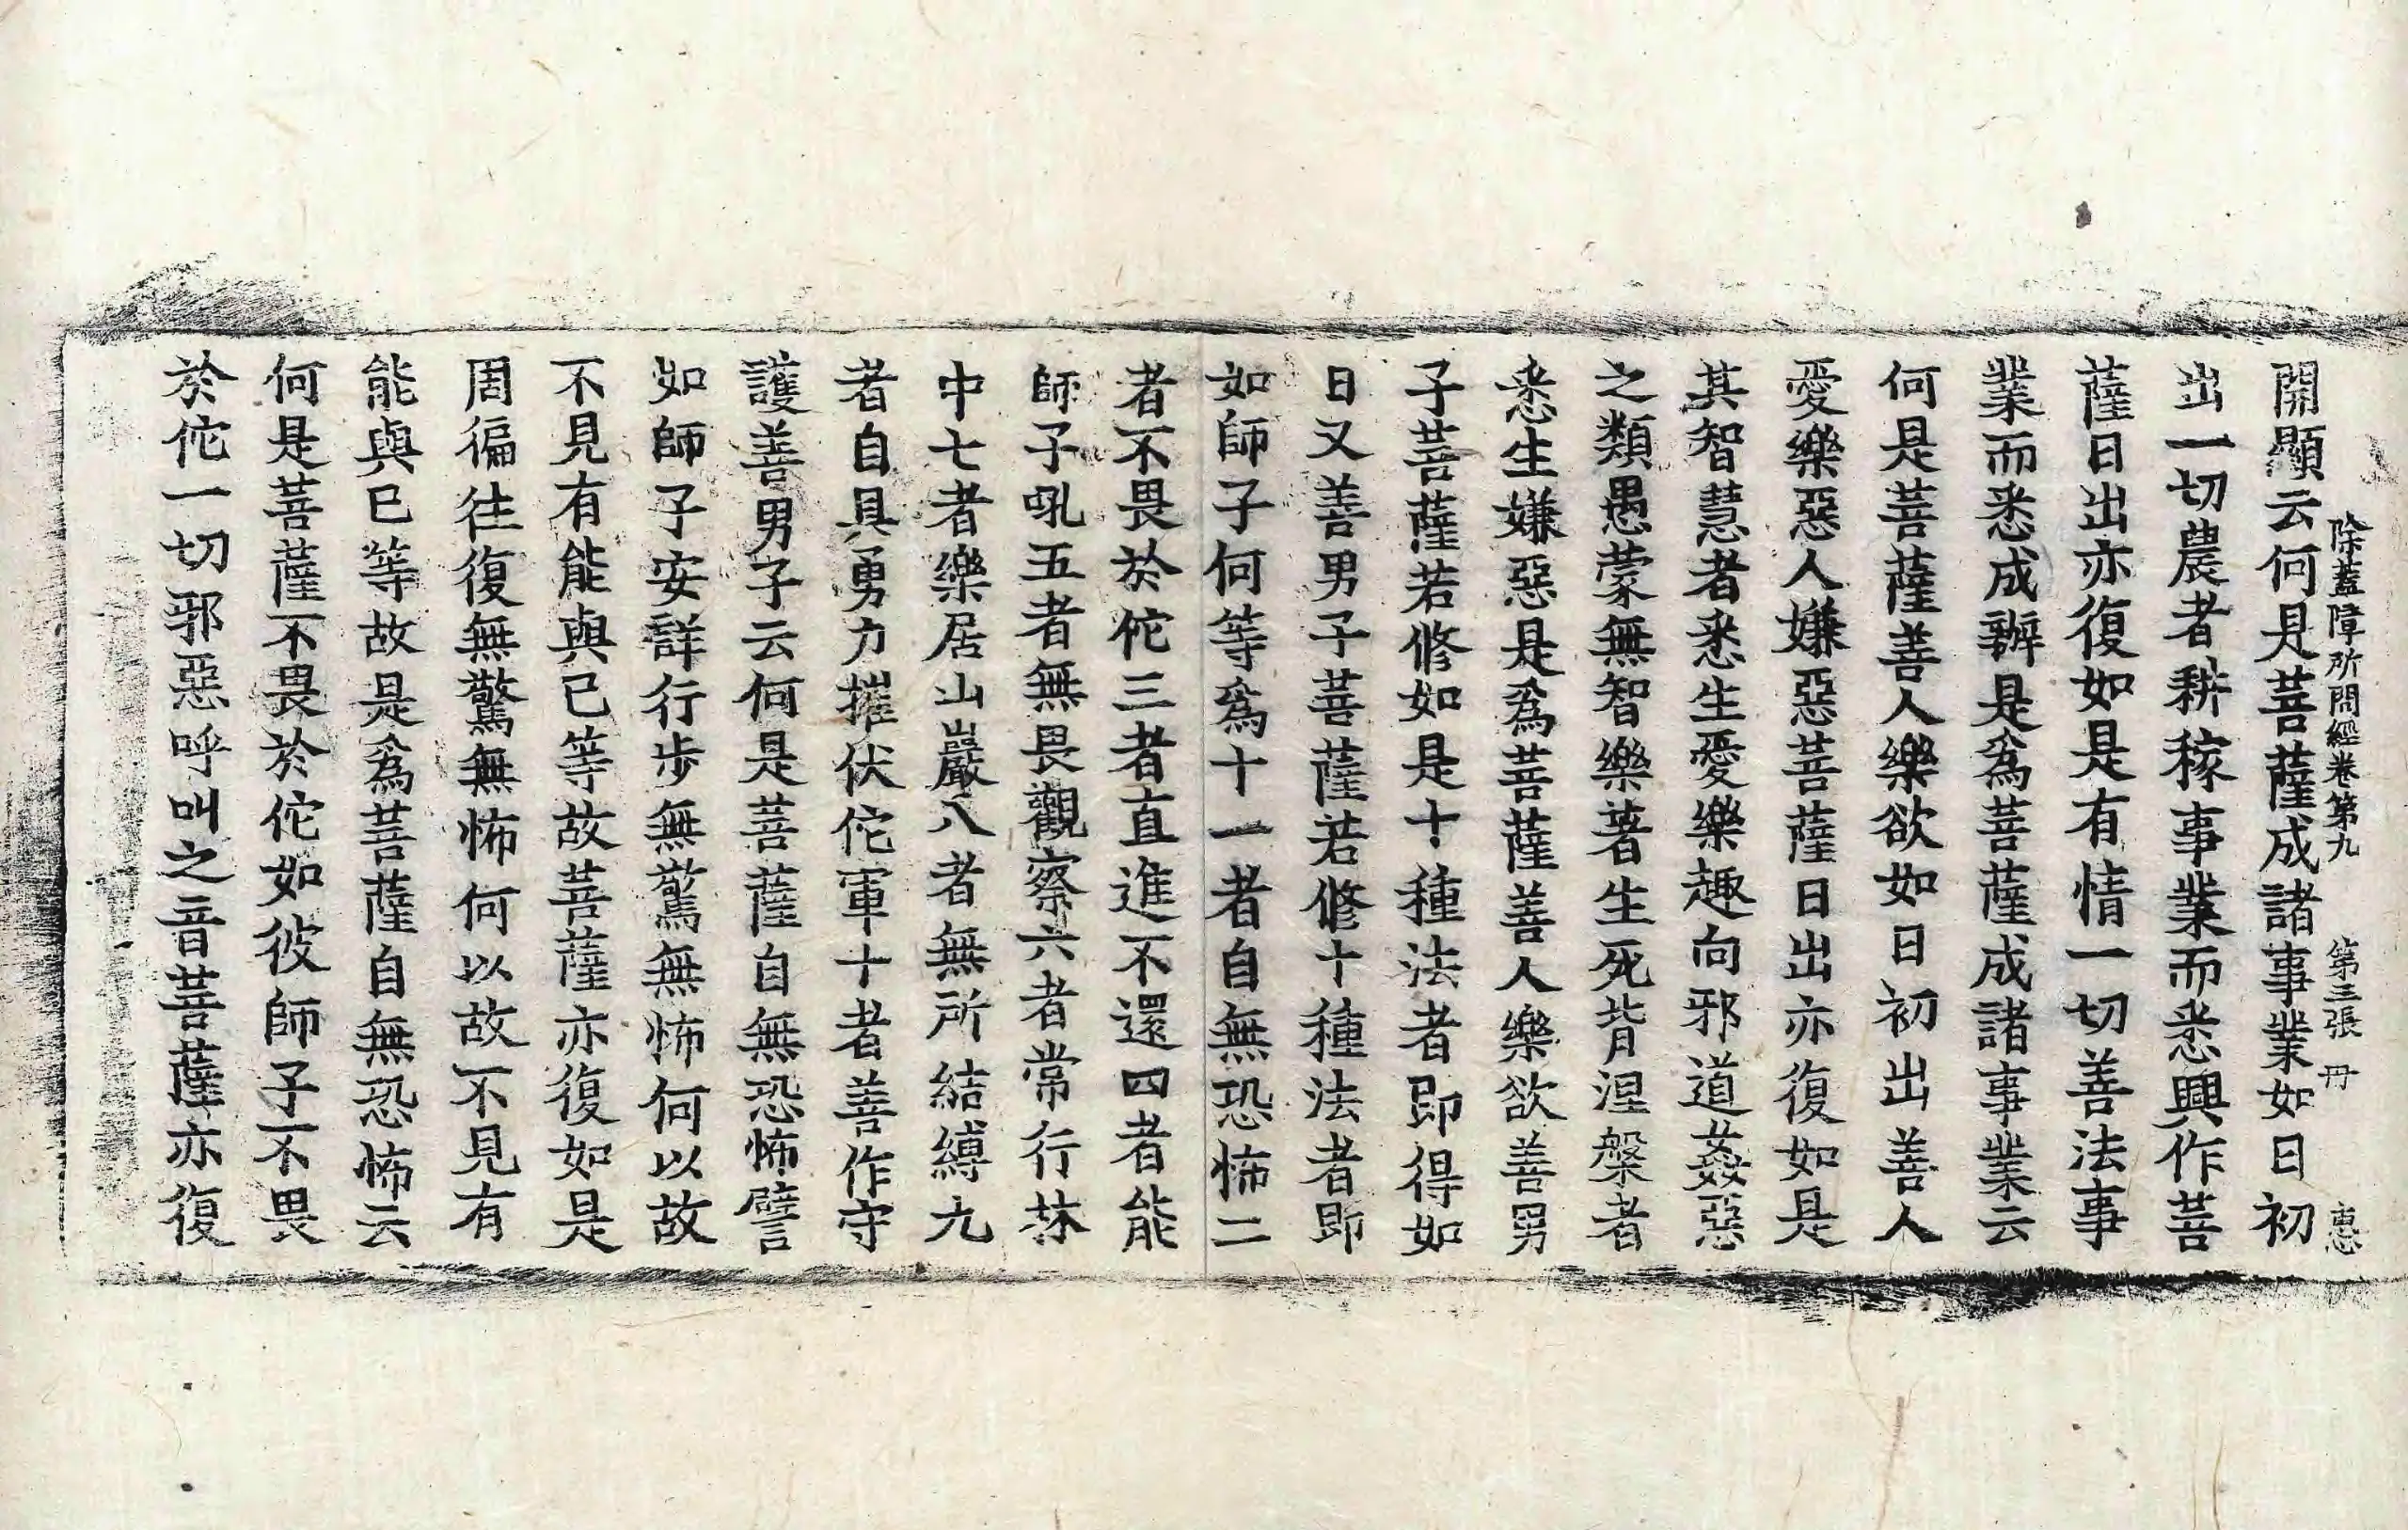 除蓋障所問經卷第九 第三張 冊 惠
開顯云何是菩薩成諸事業如日初
出一切農者耕稼事業而悉興作菩
薩日出亦復如是有情一切善法事
業而悉成辦是爲菩薩成諸事業云
何是菩薩善人樂欲如日初出善人
愛樂惡人嫌惡菩薩日出亦復如是
其智慧者悉生愛樂趣向邪道姦惡
之類愚蒙無智樂著生死背涅槃者
悉生嫌惡是爲菩薩善人樂欲善男
子菩薩若修如是十種法者即得如
日又善男子菩薩若修十種法者即
如師子何等爲十一者自無恐怖二
者不畏於佗三者直進不還四者能
師子吼五者無畏觀察六者常行林
中七者樂居山巖八者無所結縛九
者自具勇力摧伏佗軍十者善作守
護善男子云何是菩薩自無恐怖譬
如師子安詳行步無驚無怖何以故
不見有能與己等故菩薩亦復如是
周徧往復無驚無怖何以故不見有
能與已等故是爲菩薩自無恐怖云
何是菩薩不畏於佗如彼師子不畏
於佗一切邪惡呼叫之音菩薩亦復